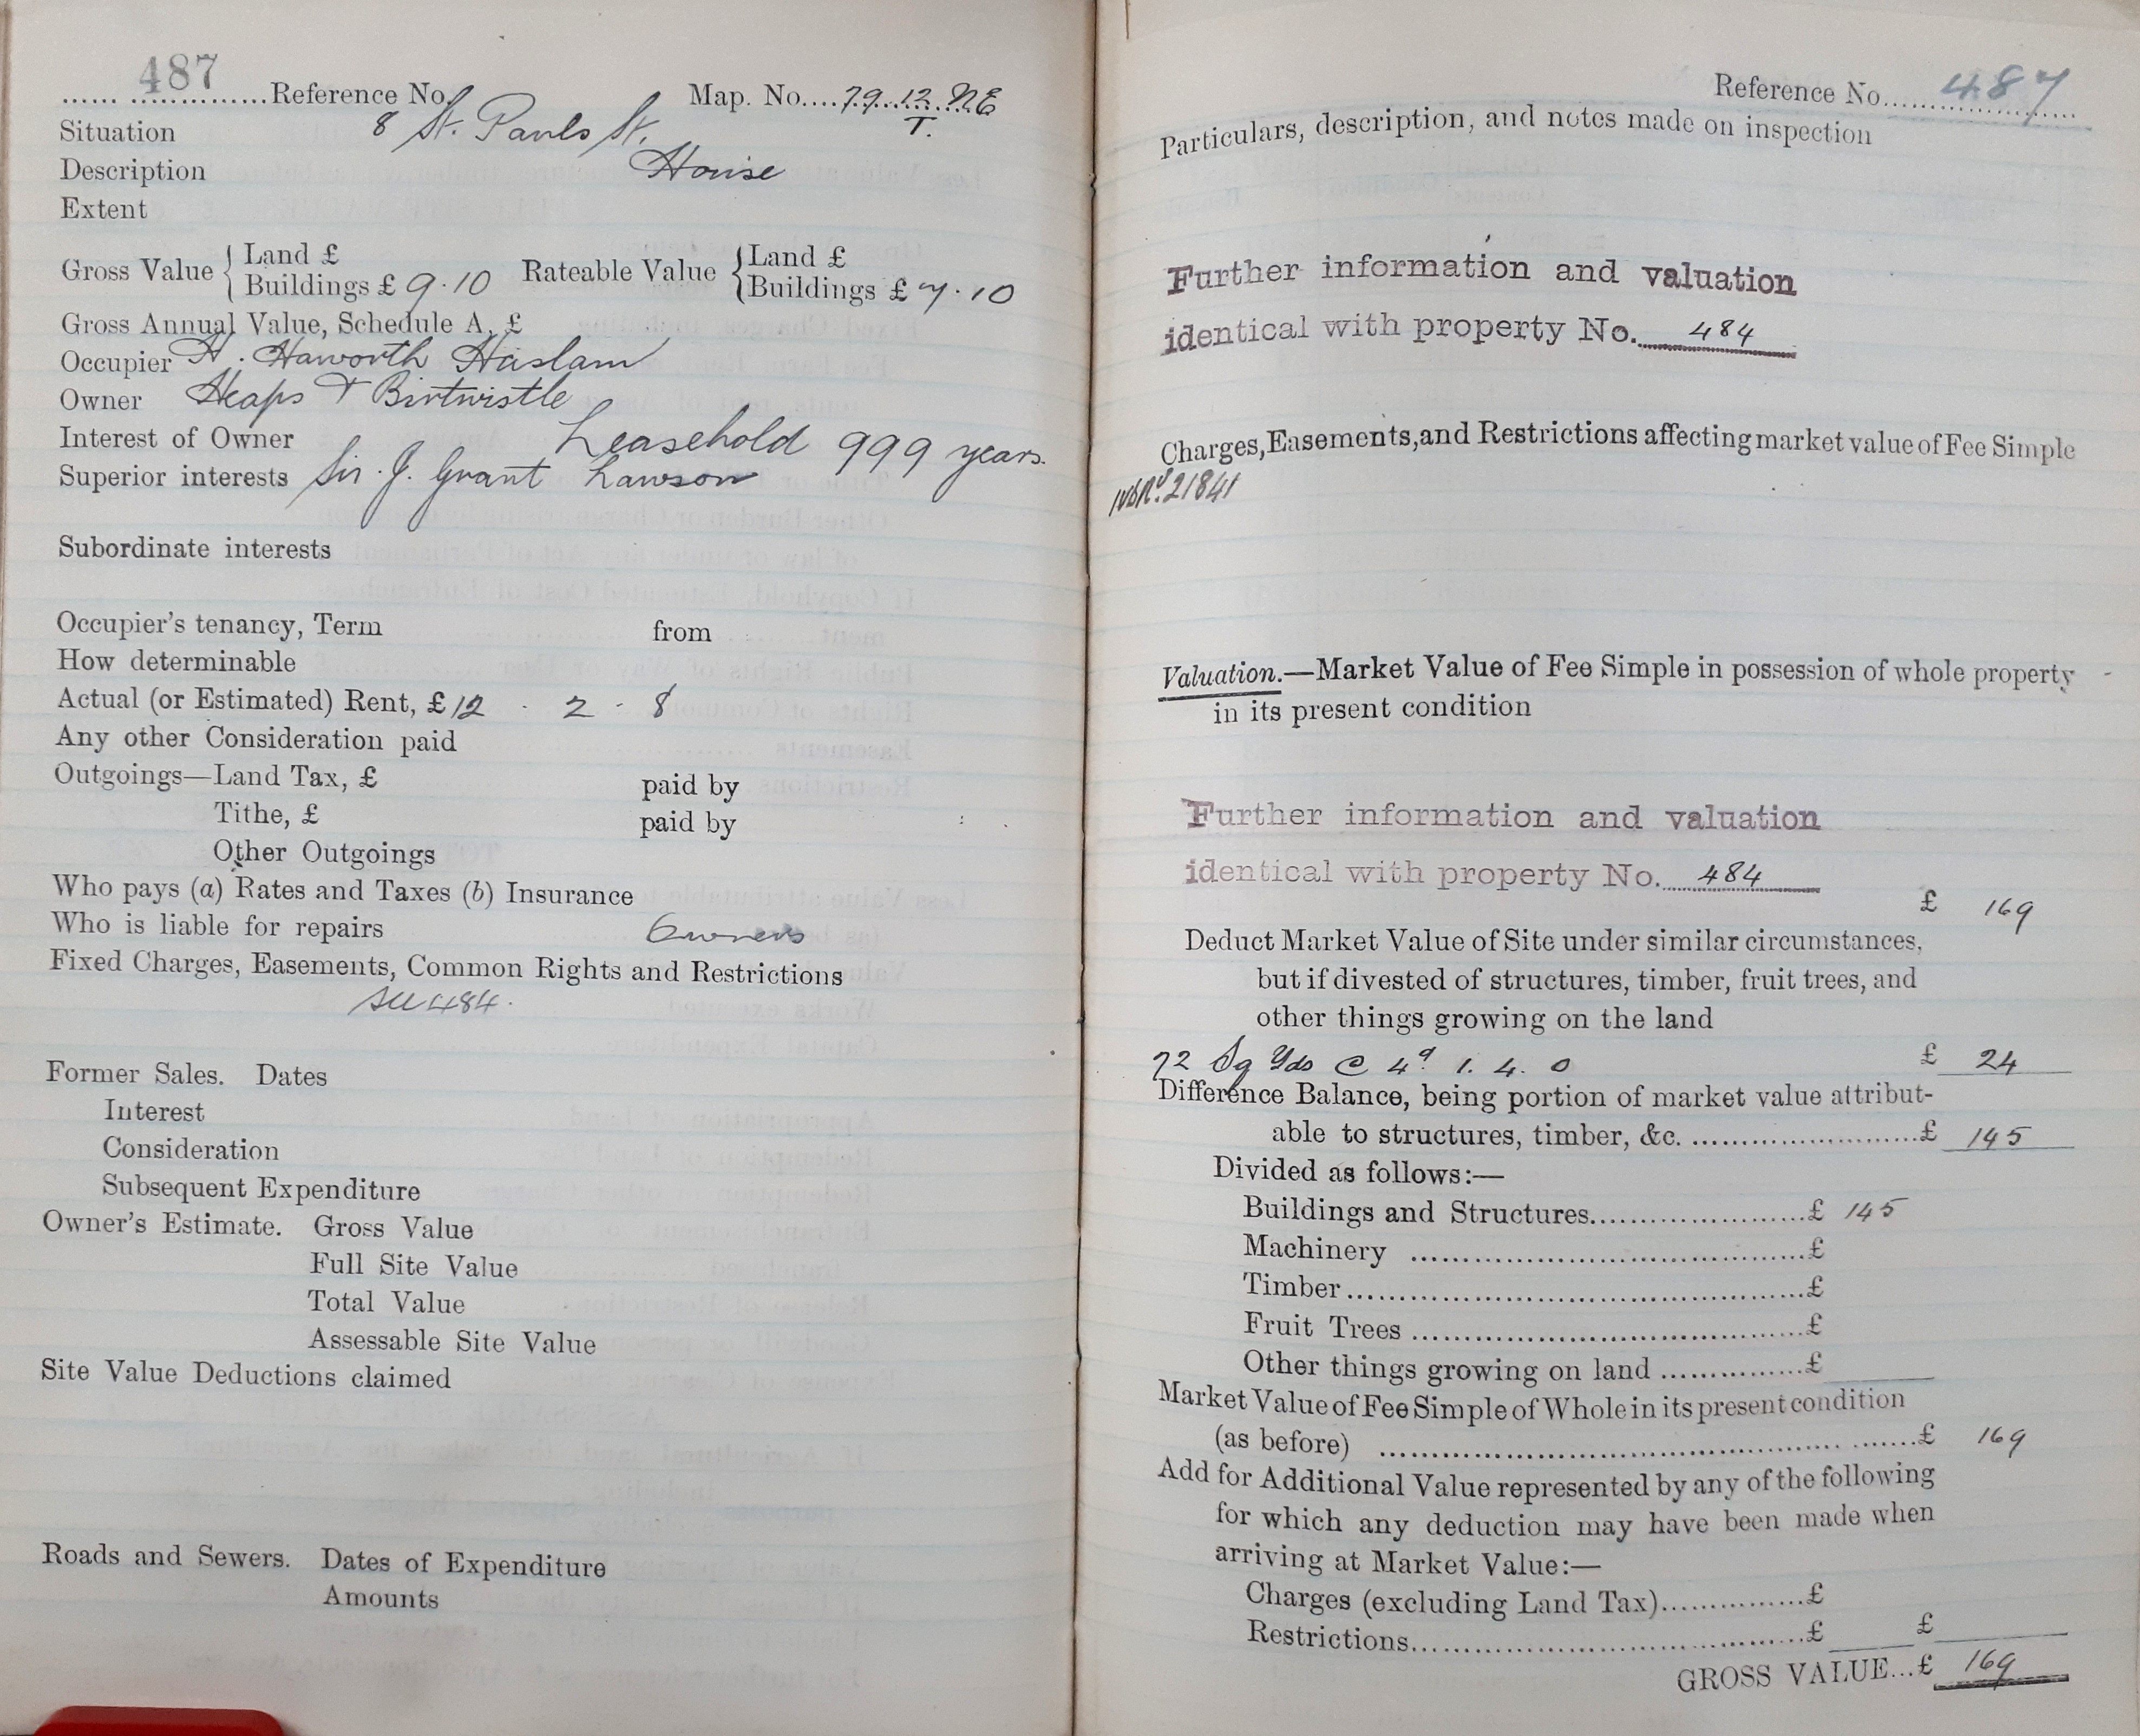 487
...... ..............Reference No. Map. No....79.12.NE
T.
Situation 8 St. Pauls St.
Description House
Extent
Gross Value { Land £ Rateable Value { Land £
Buildings £ 9.10 Buildings £ 7.10
Gross Annual Value, Schedule A, £
Occupier H. Haworth Haslam
Owner Heaps & Birtwistle
Interest of Owner Leasehold 999 years.
Superior interests Sir. J. Grant Lawson
Subordinate interests
Occupier's tenancy, Term from
How determinable
Actual (or Estimated) Rent, £12 . 2 . 8
Any other Consideration paid
Outgoings—Land Tax, £ paid by
Tithe, £ paid by
Other Outgoings
Who pays (a) Rates and Taxes (b) Insurance
Who is liable for repairs Owners
Fixed Charges, Easements, Common Rights and Restrictions
See 484.
Former Sales. Dates
Interest
Consideration
Subsequent Expenditure
Owner's Estimate. Gross Value
Full Site Value
Total Value
Assessable Site Value
Site Value Deductions claimed
Roads and Sewers. Dates of Expenditure
Amounts
Reference No. 487
Particulars, description, and notes made on inspection
Further information and valuation
identical with property No. 484
Charges, Easements, and Restrictions affecting market value of Fee Simple
21841
Valuation.—Market Value of Fee Simple in possession of whole property
in its present condition
Further information and valuation
identical with property No. 484
£ 169
Deduct Market Value of Site under similar circumstances,
but if divested of structures, timber, fruit trees, and
other things growing on the land
72 Sq Yds @ 4d 1. 4. 0 £ 24
Difference Balance, being portion of market value attribut-
able to structures, timber, &c. ........................£ 145
Divided as follows:—
Buildings and Structures........................£ 145
Machinery ............................................£
Timber....................................................£
Fruit Trees ............................................£
Other things growing on land ...............£
Market Value of Fee Simple of Whole in its present condition
(as before) ............................................................£ 169
Add for Additional Value represented by any of the following
for which any deduction may have been made when
arriving at Market Value:—
Charges (excluding Land Tax)...............£
Restrictions............................................£ £
GROSS VALUE...£ 169